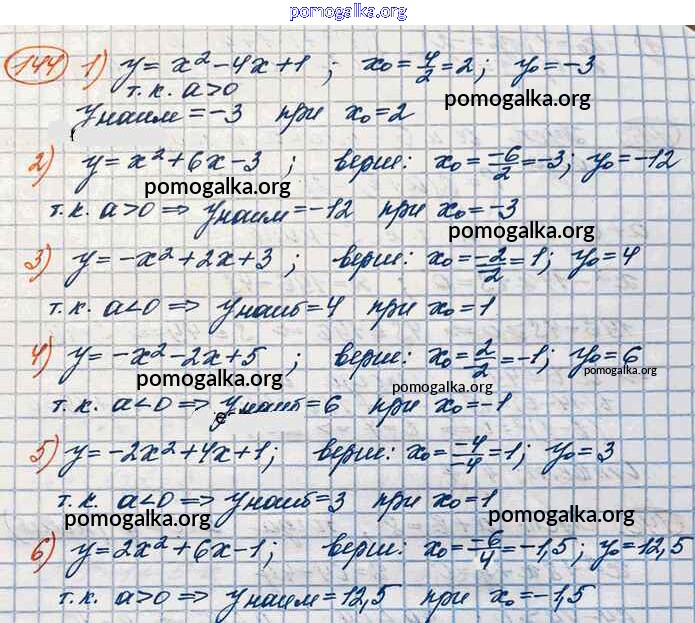 pomogalka.org
144 1) y = x² - 4x + 1 ; x₀ = 4/2 = 2 ; y₀ = -3
т.к. a>0
pomogalka.org
y наим = -3 при x₀ = 2
2) y = x² + 6x - 3 ; верш: x₀ = -6/2 = -3; y₀ = -12
pomogalka.org
т.к. a>0 ⇒ y наим = -12 при x₀ = -3
pomogalka.org
3) y = -x² + 2x + 3 ; верш: x₀ = -2/-2 = 1; y₀ = 4
т.к. a<0 ⇒ y наиб = 4 при x₀ = 1
4) y = -x² - 2x + 5 ; верш: x₀ = 2/-2 = -1; y₀ = 6
pomogalka.org
pomogalka.org
pomogalka.org
т.к. a<0 ⇒ y наиб = 6 при x₀ = -1
5) y = -2x² + 4x + 1; верш: x₀ = -4/-4 = 1; y₀ = 3
т.к. a<0 ⇒ y наиб = 3 при x₀ = 1
pomogalka.org
pomogalka.org
6) y = 2x² + 6x - 1; верш: x₀ = -6/4 = -1,5; y₀ = 12,5
т.к. a>0 ⇒ y наим = 12,5 при x₀ = -1,5